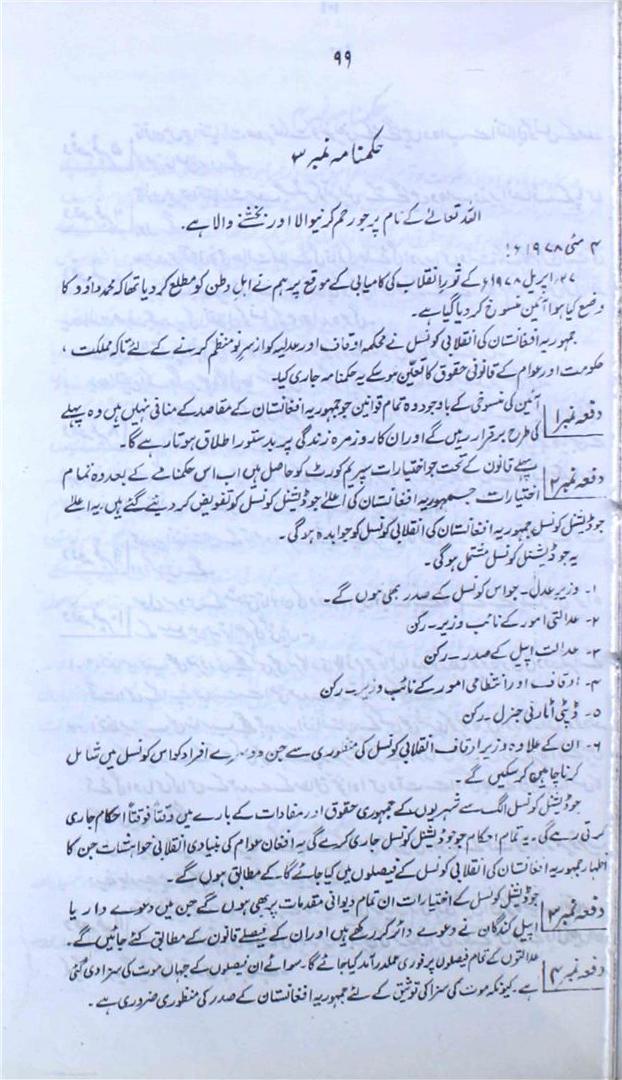 ۹۹
حکمنامہ نمبر ۳
اللہ تعالےٰ کے نام پر جو رحم کرنیوالا اور بخشنے والا ہے۔
۴ مئی ۱۹۷۸ء!
۲۷؍ اپریل ۱۹۷۸ء کے ثور انقلاب کی کامیابی کے موقع پر ہم نے اہل وطن کو مطلع کر دیا تھا کہ محمد داؤد کا
وضع کیا ہوا آئین منسوخ کر دیا گیا ہے۔
جمہوریہ افغانستان کی انقلابی کونسل نے محکمہ اوقاف اور عدلیہ کو از سرِنو منظم کرنے کے لئے تاکہ مملکت،
حکومت اور عوام کے قانونی حقوق کا تعین ہو سکے یہ حکمنامہ جاری کیا۔
دفعہ نمبر ۱ آئین کی منسوخی کے باوجود وہ تمام قوانین جو جمہوریہ افغانستان کے مقاصد کے منافی نہیں ہیں وہ پہلے
کی طرح برقرار رہیں گے اور ان کا روزمرہ زندگی پر بدستور اطلاق ہوتا رہے گا۔
دفعہ نمبر ۲ پہلے قانون کے تحت جو اختیارات سپریم کورٹ کو حاصل ہیں اب اس حکمنامے کے بعد وہ تمام
اختیارات جمہوریہ افغانستان کی اعلےٰ جوڈیشنل کونسل کو تفویض کر دیئے گئے ہیں، یہ اعلےٰ
جوڈیشنل کونسل جمہوریہ افغانستان کی انقلابی کونسل کو جوابدہ ہوگی۔
یہ جوڈیشنل کونسل مشتمل ہوگی۔
۱۔ وزیر عدل۔ جو اس کونسل کے صدر بھی ہوں گے۔
۲۔ عدالتی امور کے نائب وزیر۔ رکن
۳۔ عدالت اپیل کے صدر۔ رکن
۴۔ اوقاف اور انتظامی امور کے نائب وزیر۔ رکن
۵۔ ڈپٹی اٹارنی جنرل۔ رکن
۶۔ ان کے علاوہ وزیر اوقاف انقلابی کونسل کی منظوری سے جن دوسرے افراد کو اس کونسل میں شامل
کرنا چاہیں کر سکیں گے۔
جوڈیشنل کونسل الگ سے شہریوں کے جمہوری حقوق اور مفادات کے بارے میں وقتاً فوقتاً احکام جاری
کرتی رہے گی۔ یہ تمام احکام جو جوڈیشنل کونسل جاری کرے گی یہ افغان عوام کی بنیادی انقلابی خواہشات جن کا
اظہار جمہوریہ افغانستان کی انقلابی کونسل کے فیصلوں میں کیا جائے گا کے مطابق ہوں گے۔
دفعہ نمبر ۳ جوڈیشنل کونسل کے اختیارات ان تمام دیوانی مقدمات پر بھی ہوں گے جن میں دعوے دار یا
اپیل کنندگان نے دعوے دائر کر رکھے ہیں اور ان کے فیصلے قانون کے مطابق کئے جائیں گے۔
دفعہ نمبر ۴ عدالتوں کے تمام فیصلوں پر فوری عملدرآمد کیا جائے گا۔ سوائے ان فیصلوں کے جہاں موت کی سزا دی گئی
ہے۔ کیونکہ موت کی سزا کی توثیق کے لئے جمہوریہ افغانستان کے صدر کی منظوری ضروری ہے۔